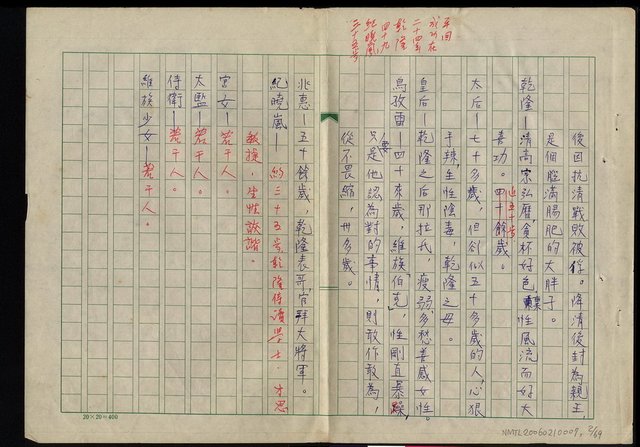 後因抗清戰敗被俘。降清後封為親王
是個腦滿腸肥的大胖子。
乾隆—清高宗弘曆,貪杯好色,性風流而好大
喜功。四十餘歲。
近五十歲
太后—七十多歲,但卻似五十多歲的人,心狠
手辣,生性陰毒,乾隆之母。
皇后—乾隆之后那拉氏,瘦弱,多愁善感女性。
烏孜雷—四十來歲,維族「伯克」,性剛直暴躁,
只要是他認為對的事情,則敢作敢為,
從不畏縮,卅多歲。
兆惠—五十餘歲,乾隆表哥,官拜大將軍。
紀曉嵐—約三十五歲,乾隆侍讀學士,才思
敏捷,生性詼諧。
宮女—若干人。
太監—若干人。
侍衛—若干人。
維族少女—若干人。
平回
成功在
二十四年
乾隆
四十九
紀曉嵐
三十五歲
20×20=400
NMTL20060210009, 2/69